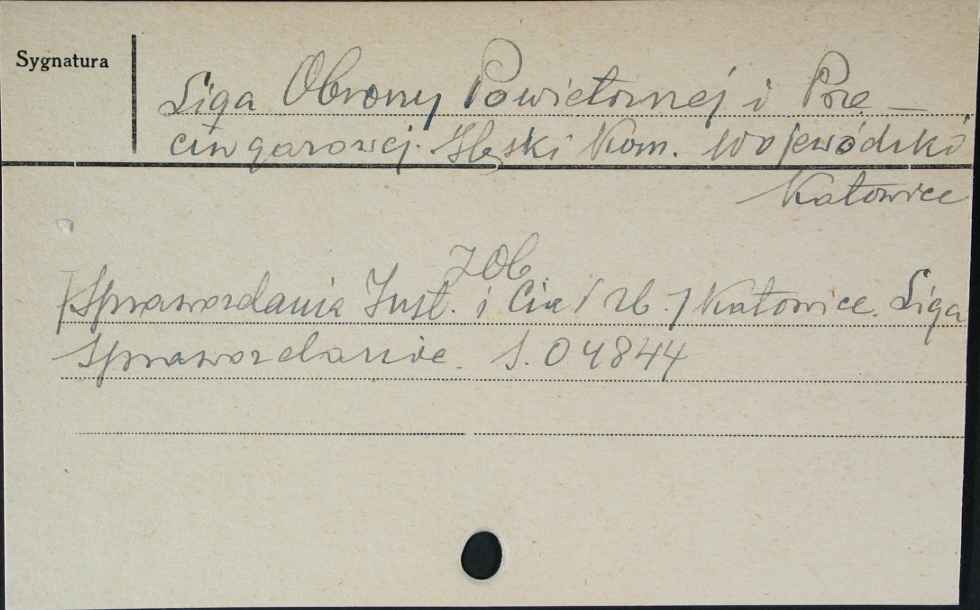 Sygnatura
Liga Obrony Powietrznej i Prze-
ciwgazowej. Śląski Kom. Wojewódzki
Katowice
ZOb.
Sprawozdania Inst. i Cia / zb. / Katowice. Liga
Sprawozdanie. S. 04844